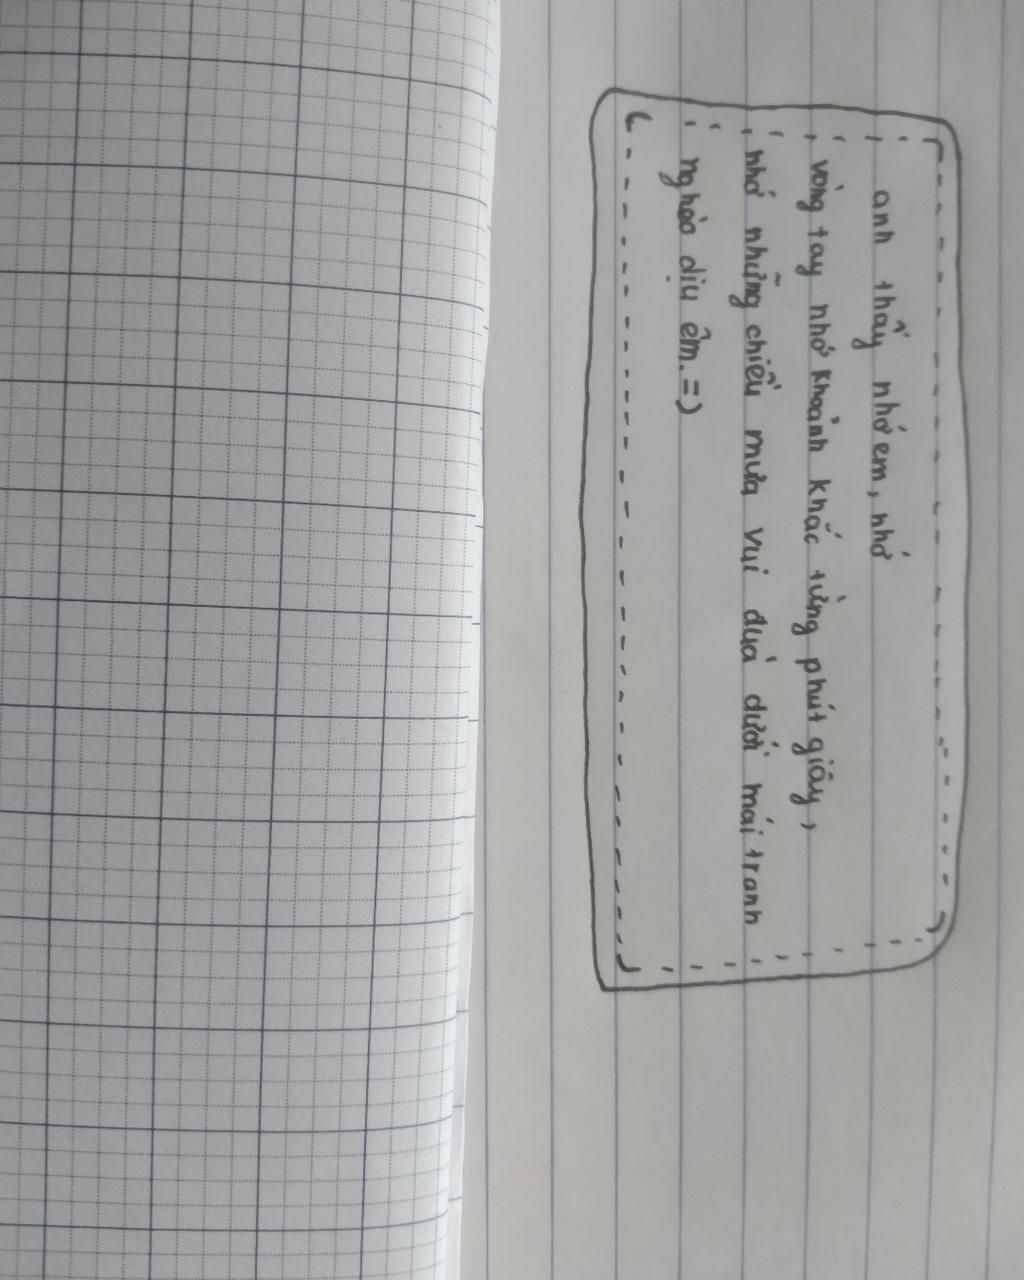 anh thấy nhớ em, nhớ
vòng tay nhớ khoảnh khắc từng phút giây,
nhớ những chiều mưa vui đùa dưới mái tranh
nghèo dịu êm.=)